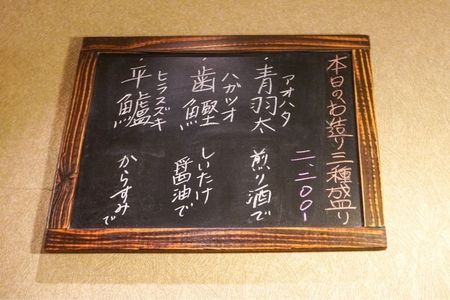 本日のお造り三種盛り
二、二〇〇-
アオハタ
・青羽太 煎り酒で
ハガツオ
・歯鰹 しいたけ醤油で
ヒラスズキ
・平鱸 からすみで